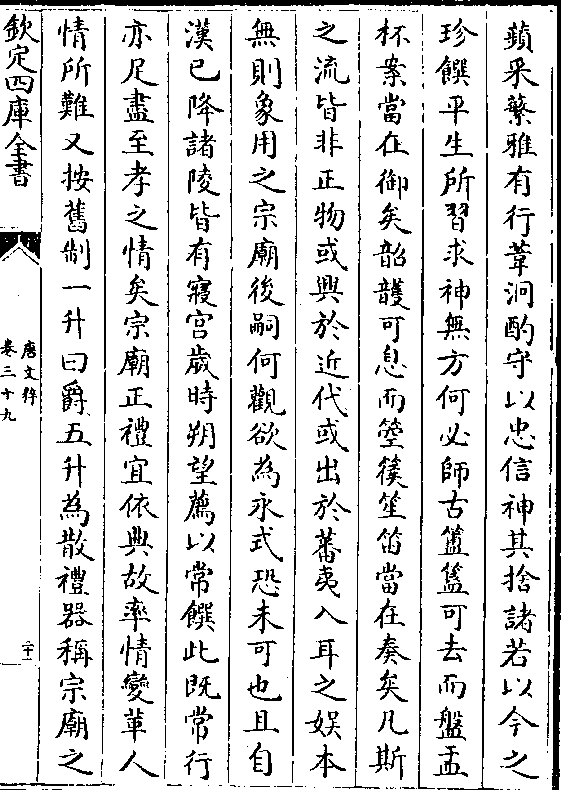 蘋采蘩雅有行葦泂酌守以忠信神其捨諸若以今之
珍饌平生所習求神無方何必師古簠簋可去而盤盂
杯案當在御矣韶頀可息而箜篌笙笛當在奏矣凡斯
之流皆非正物或興於近代或出於蕃夷入耳之娯本
無則象用之宗廟後嗣何觀欲為永式恐未可也且自
漢已降諸陵皆有寢宮歲時朔望薦以常饌此既常行
亦足盡至孝之情矣宗廟正禮宜依典故率情變革人
情所難又按舊制一升曰爵五升為散禮器稱宗廟之
欽定四庫全書
唐文粹
卷三十九